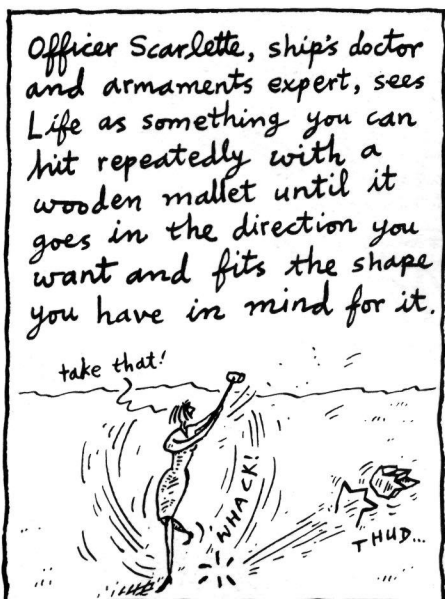 Officer Scarlette, ship's doctor
and armaments expert, sees
Life as something you can
hit repeatedly with a
wooden mallet until it
goes in the direction you
want and fits the shape
you have in mind for it.
take that!
WHACK!
THUD...